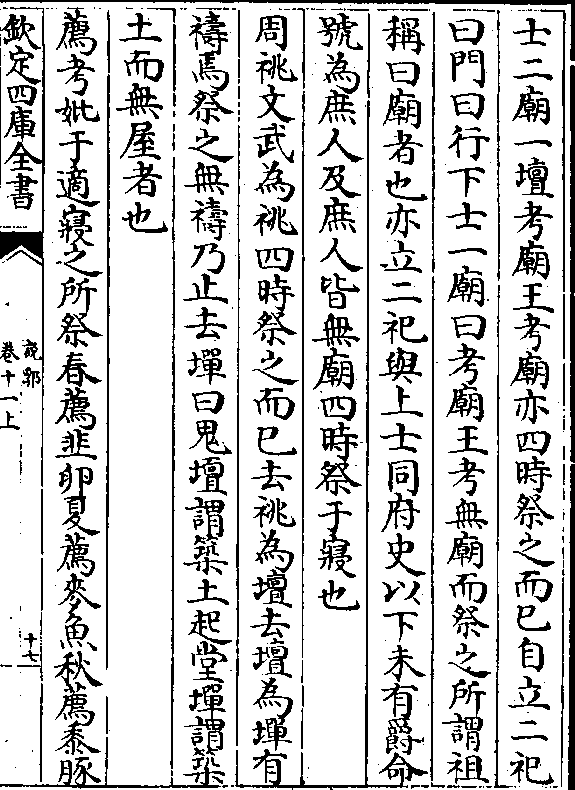 士二廟一壇考廟王考廟亦四時祭之而已自立二祀
曰門曰行下士一廟曰考廟王考無廟而祭之所謂祖
稱曰廟者也亦立二祀與上士同府史以下未有爵命
號為庶人及庶人皆無廟四時祭于寢也
周祧文武為祧四時祭之而已去祧為壇去壇為墠有
禱焉祭之無禱乃止去墠曰鬼壇謂築土起堂墠謂築
土而無屋者也
薦考妣于適寢之所祭春薦韭卵夏薦麥魚秋薦黍豚
欽定四庫全書
說郛
卷十一上
十七